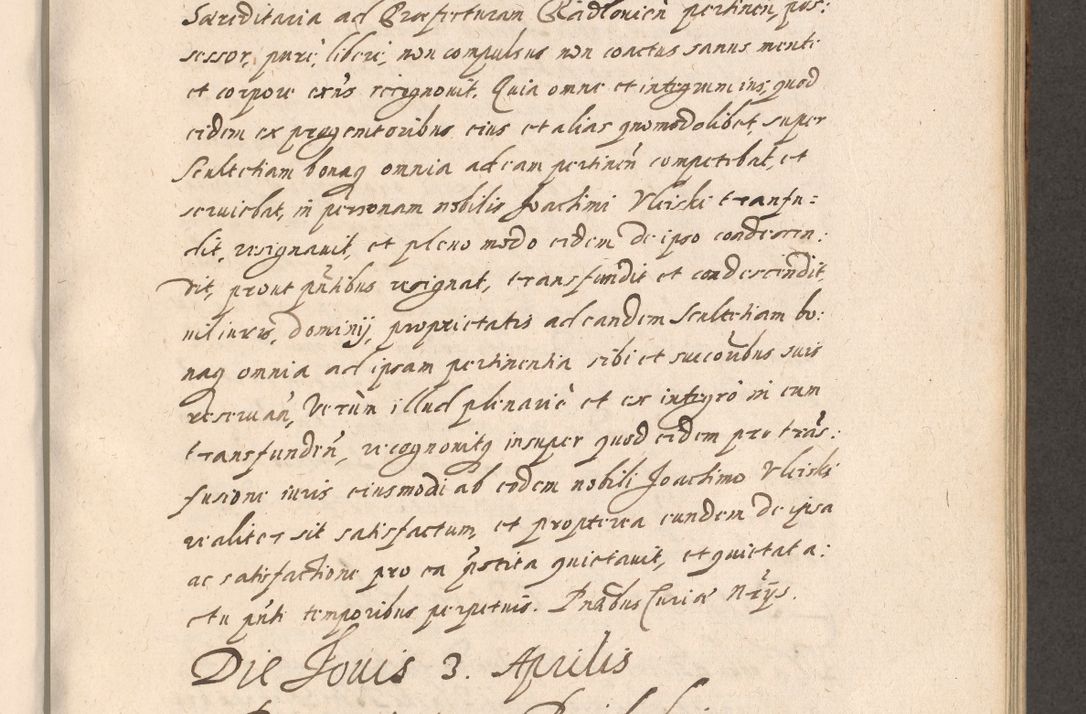 Haereditaria ad Praefecturam Radlovien̄ pertinen̄ pos:
sessor, purè, liberè, non compulsus non coactus sanus mente
et corpore exn̄s recognovit. Quia omne et integrum ius, quod
eidem ex progenitoribus eius et alias quomodolibet, super
Scultetiam bonaq omnia ad eam pertinen̄ competebat, et
serviebat, in personam nobilis Joachimi Vleiski transfu:
dit, resignavit, et pleno modo eidem de ipso condescen:
dit, prout pn̄tibus resignat, transfundit et condescindit,
nil iuris, dominij, proprietatis ad eandem Scultetiam bo:
naq omnia ad ipsam pertinentia sibi et succoribus suis
reservan̄, Verùm illud plenariè et ex integro in eum
transfunden̄, recognovitq insuper quod eidem pro trās:
fusione iuris eiusmodi ab eodem nobili Joachimo Vleiski
realiter sit satisfactum, et propterea eundem de ipsa
ac satisfactione pro ea pstita quietavit, et quietat a:
ctu pn̄ti temporibus perpetuis. Pn̄tibus Curiae Nrijs.
Die Jovis 3. Aprilis